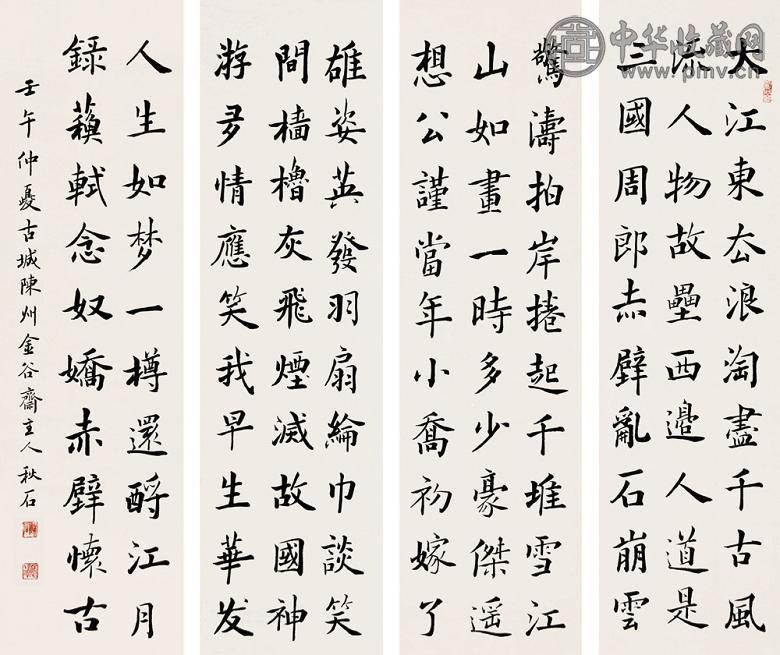 大江東厺浪淘盡千古風
流人物故壘西邉人道是
三國周郎赤壁亂石崩雲
驚濤拍岸捲起千堆雪江
山如畫一時多少豪傑遥
想公謹當年小喬初嫁了
雄姿英發羽扇綸巾談笑
間檣櫓灰飛煙滅故國神
游多情應笑我早生華发
人生如梦一樽還酹江月
錄蘓軾念奴嬌赤壁懷古
壬午仲夏古城陳州金谷齋主人秋石
中华收藏网
www.pmv.cn